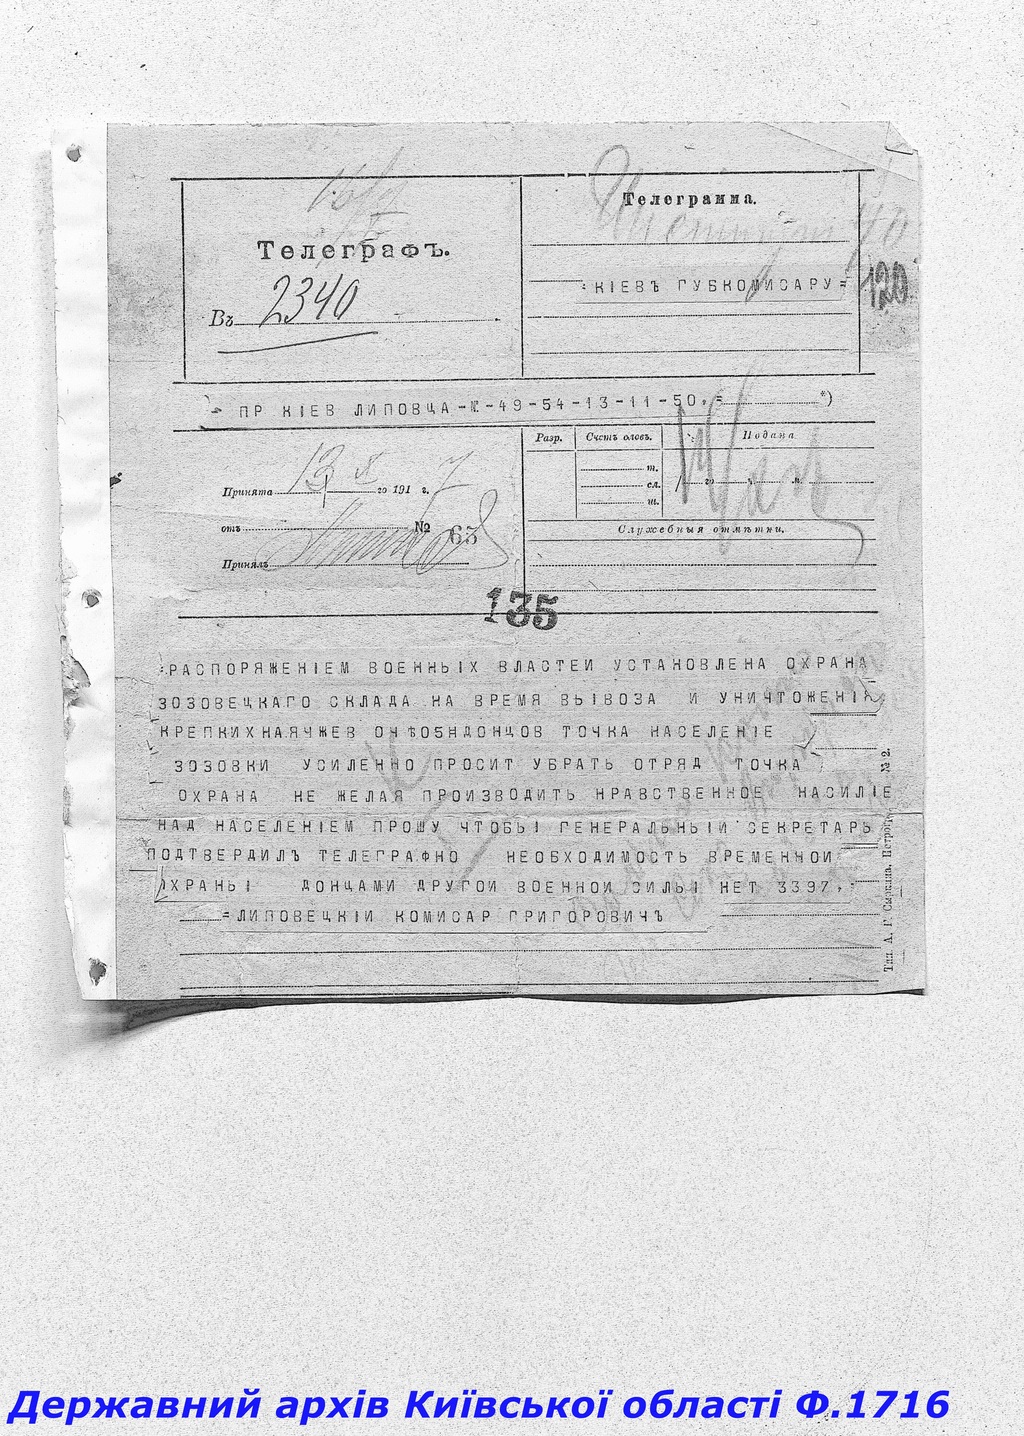 Телеграфъ.
Въ 2340
Телеграмма.
=КІЕВЪ ГУБКОМИСАРУ=
120
ПР КІЕВ ЛИПОВЦА-№-49-54-13-11-50,= *)
Принята 13 X го 1917 г.
отъ № 65
Принялъ
Разр. Счетъ словъ. Подана
т.
сл. го ч. м.
ш.
Служебныя отмѣтки.
135
=РАСПОРЯЖЕНІЕМ ВОЕННЫХ ВЛАСТЕИ УСТАНОВЛЕНА ОХРАНА
ЗОЗОВЕЦКАГО СКЛАДА НА ВРЕМЯ ВЫВОЗА И УНИЧТОЖЕНІЯ
КРЕПКИХНА ТОЧКА НАСЕЛЕНІЕ
ЗОЗОВКИ УСИЛЕННО ПРОСИТ УБРАТЬ ОТРЯД ТОЧКА
ОХРАНА НЕ ЖЕЛАЯ ПРОИЗВОДИТЬ НРАВСТВЕННОЕ НАСИЛІЕ
НАД НАСЕЛЕНІЕМ ПРОШУ ЧТОБЫ ГЕНЕРАЛЬНЫИ СЕКРЕТАРЬ
ПОДТВЕРДИЛЪ ТЕЛЕГРАФНО НЕОБХОДИМОСТЬ ВРЕМЕННОИ
ОХРАНЫ ДОНЦАМИ ДРУГОИ ВОЕННОИ СИЛЫ НЕТ 3397,-
=ЛИПОВЕЦКІИ КОМИСАР ГРИГОРОВИЧЪ
№ 2.
Державний архів Київської області Ф.1716